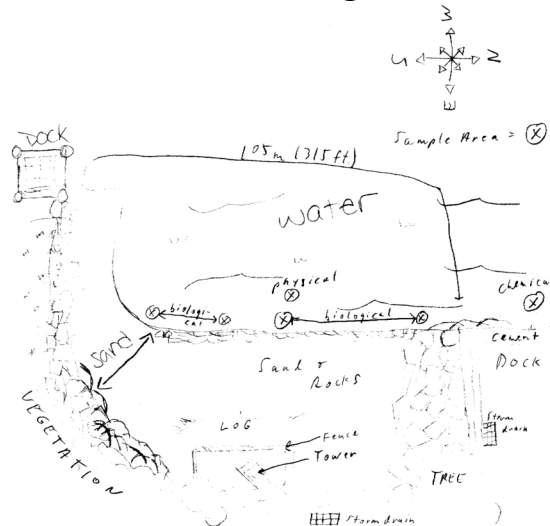 W
S N
E
Sample Area = X
DOCK
105m (315ft)
water
physical
chemical
biologi-
cal
biological
cement
DOCK
Sand
Sand &
Rocks
VEGETATION
LOG
Fence
Tower
Storm
drain
TREE
Storm drain